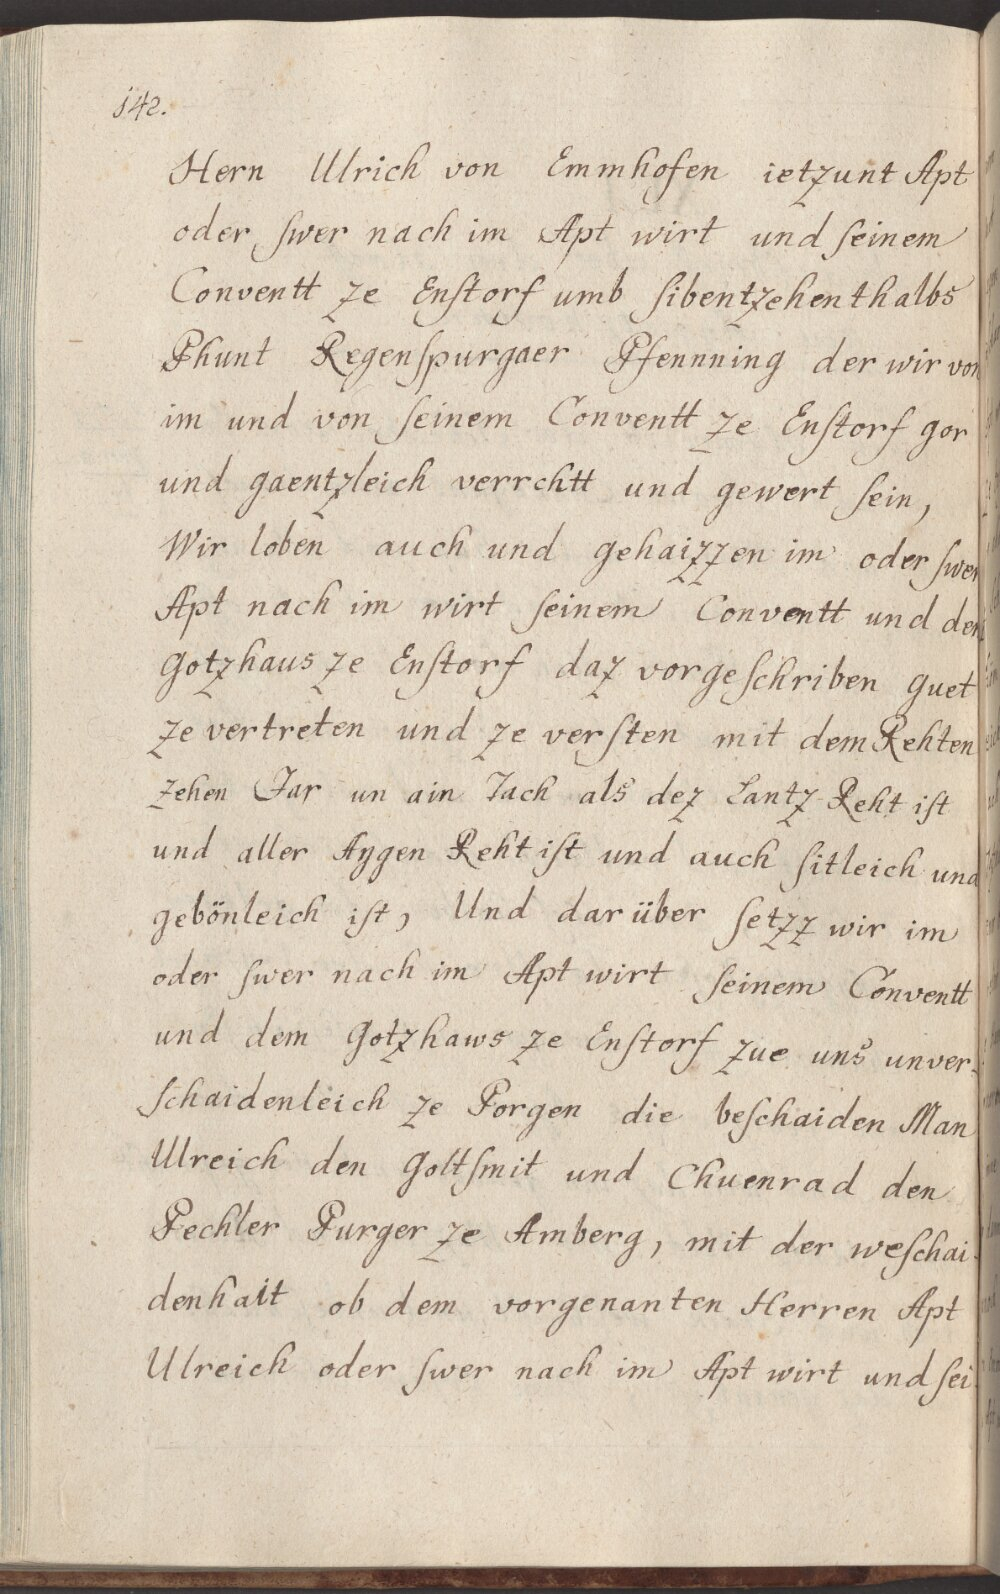 142.
Hern Ulrich von Emmhofen ietzunt Apt
oder swer nach im Apt wirt und seinem
Conventt ze Enstorf umb sibentzehenthalbs
Phunt Regenspurgaer Pfennning der wir von
im und von seinem Conventt ze Enstorf gor
und gaentzleich verrchtt und gewert sein,
Wir loben auch und gehaizzen im oder swer
Apt nach im wirt seinem Conventt und dem
Gotzhaus ze Enstorf daz vorgeschriben guet
ze vertreten und ze versten mit dem Rehten
zehen Jar un ain Tach als dez Lantz Reht ist
und aller Aygen Reht ist und auch sitleich und
gebönleich ist, Und darüber setzz wir im
oder swer nach im Apt wirt seinem Conventt
und dem Gotzhaws ze Enstorf zue uns unver-
schaidenleich ze Porgen die beschaiden Man
Ulreich den Goltsmit und Chuenrad den
Pechler Purger ze Amberg, mit der weschai-
denhait ob dem vorgenanten Herren Apt
Ulreich oder swer nach im Apt wirt und sei